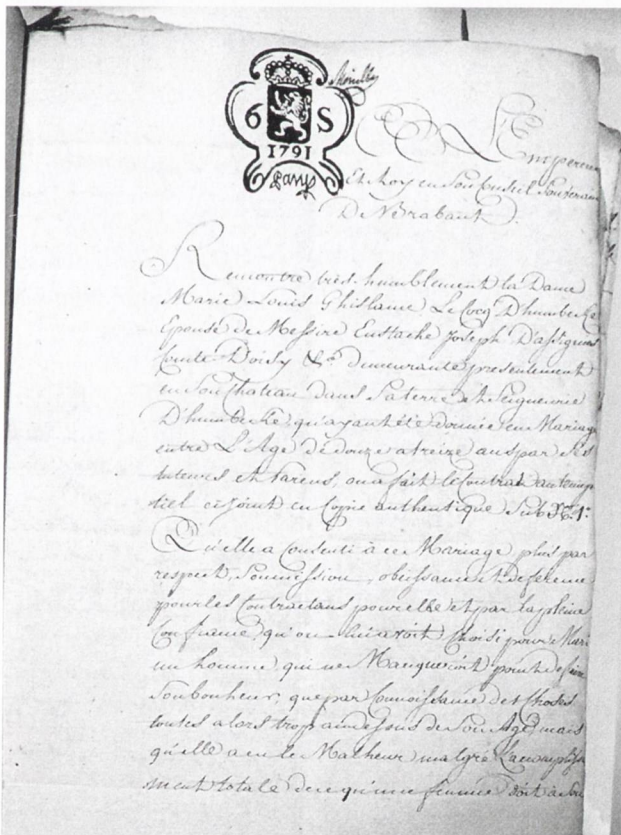 6 S
1791
L'Empereur
Et Roy en Son Conseil Souverain
De Brabant.
Remontre tres humblement la Dame
Marie Louis Ghislaine Le Cocq D'humbeke
Epouse de Messire Eustache Joseph D'assignies
Comte D'oisy &a demeurante presentement
en Son Chateau dans Sa terre et Seigneurie
D'humbeke, qu'ayant été donnée en Mariage
entre L'Age de douze a treize ans par Ses
tuteurs et Parens, on a fait le Contrat antenup
tiel cy joint en Copie authentique Sub N.o 1.o
Qu'elle a Consenti à ce Mariage plus par
respect, Soumission, obeissance et deference
pour les Contractans pour elle et par la pleine
Confiance qu'on lui avoit Choisi pour Mari
un homme qui ne Manqueroit point de faire
Son bonheur, que par Connoissance de Choses
toutes alors trop au dessus de Son Age, mais
qu'elle a eu le Malheur malgré L'accomplisse
ment totale de ce qu'une femme doit à Son